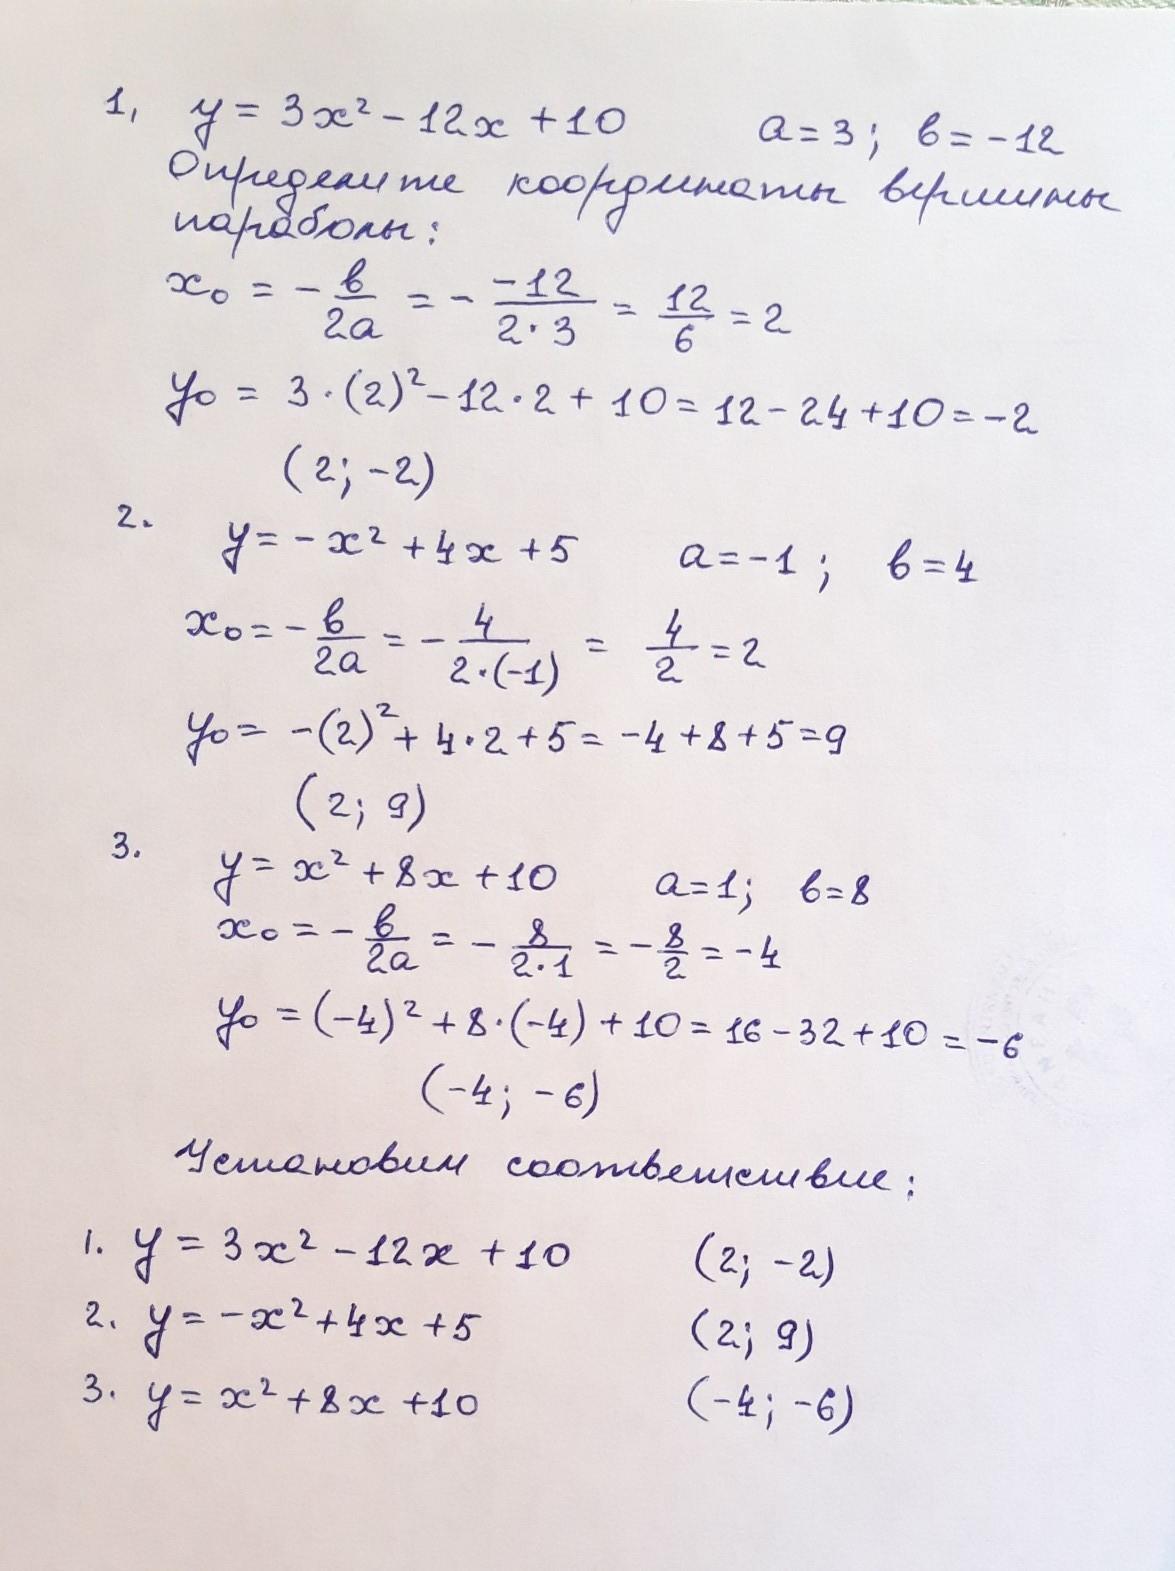 1, y = 3x² - 12x + 10 a = 3; в = -12
Определите координаты вершины
параболы:
x₀ = - в/2a = - -12/2·3 = 12/6 = 2
y₀ = 3·(2)² - 12·2 + 10 = 12 - 24 + 10 = -2
(2; -2)
2. y = -x² + 4x + 5 a = -1; в = 4
x₀ = - в/2a = - 4/2·(-1) = 4/2 = 2
y₀ = -(2)² + 4·2 + 5 = -4 + 8 + 5 = 9
(2; 9)
3. y = x² + 8x + 10 a = 1; в = 8
x₀ = - в/2a = - 8/2·1 = - 8/2 = -4
y₀ = (-4)² + 8·(-4) + 10 = 16 - 32 + 10 = -6
(-4; -6)
Установим соответствие:
1. y = 3x² - 12x + 10 (2; -2)
2. y = -x² + 4x + 5 (2; 9)
3. y = x² + 8x + 10 (-4; -6)